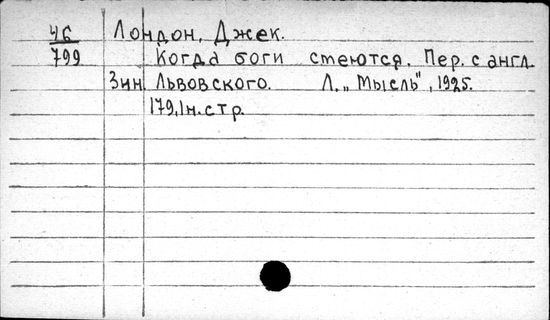 46
799
Лондон, Джек.
Когда боги смеются. Пер. с англ.
Зин. Львовского. Л. „Мысль", 1925.
179, 1н. стр.